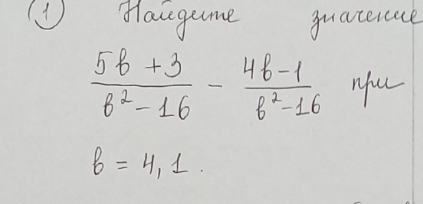 ① Найдите значение
(5в + 3)/(в² - 16) - (4в - 1)/(в² - 16) при
в = 4,1.